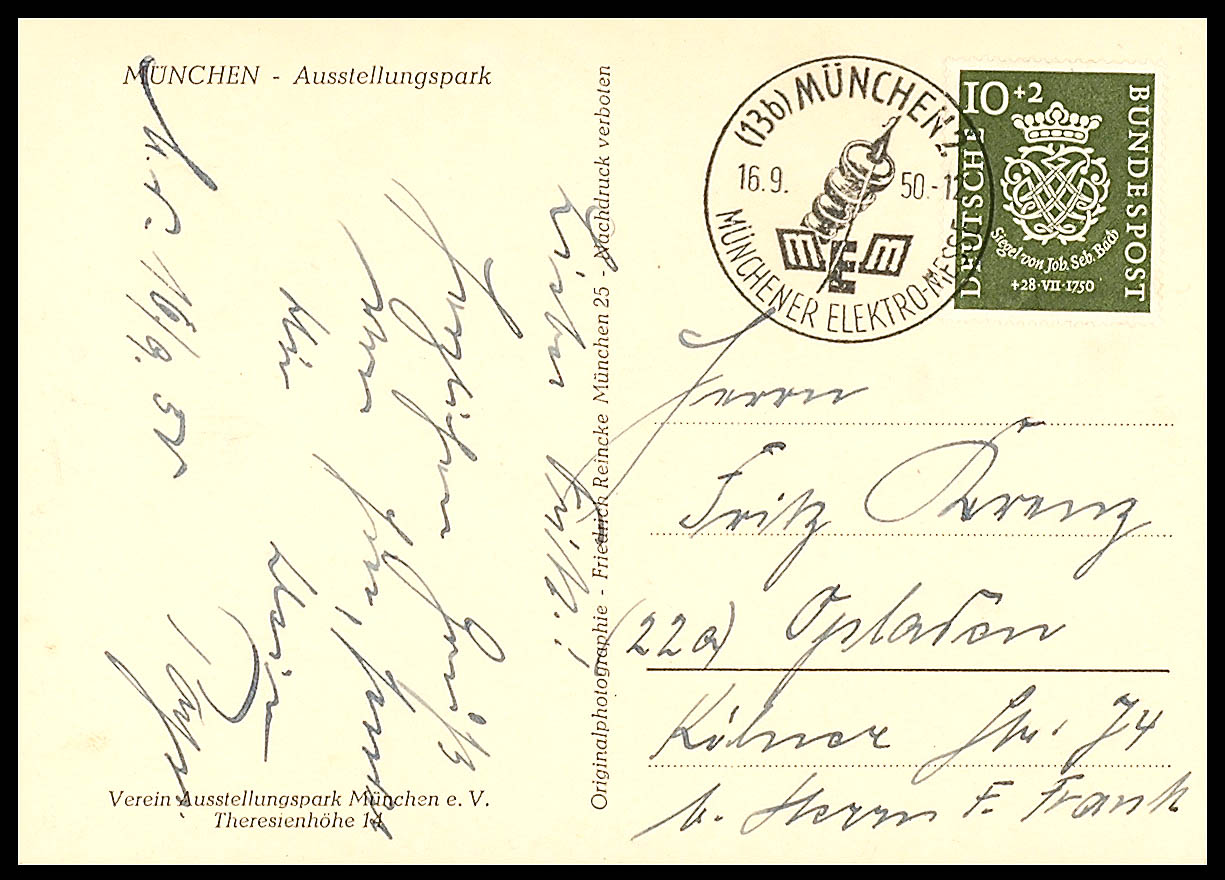 MÜNCHEN - Ausstellungspark
M. d. 16/9. 50
Lieber Fritz!
Herzlichen Gruß
von
Dein
Verein Ausstellungspark München e. V.
Theresienhöhe 14
Originalphotographie - Friedrich Reincke München 25 - Nachdruck verboten
(13b) MÜNCHEN 2
16.9. 50.-12
MÜNCHENER ELEKTRO-MESSE
m E m
10+2
DEUTSCHE
BUNDESPOST
Siegel von Joh. Seb. Bach
+28·VII·1750
Herrn
Fritz Krenz
(22a) Opladen
Kölner Str. 74
b. Herrn F. Frank